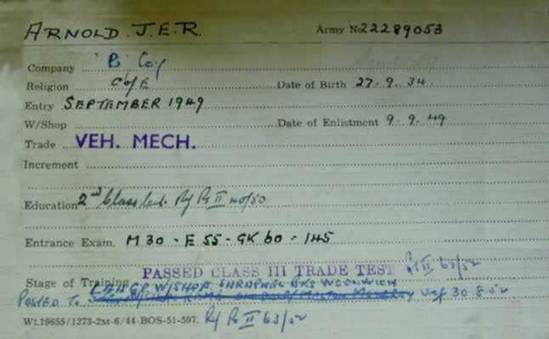 ARNOLD. J.E.R. Army No 22289053
Company 'B' Coy
Religion C of E Date of Birth 27.9.34.
Entry SEPTEMBER 1949
W/Shop Date of Enlistment 9.9.49
Trade VEH. MECH.
Increment
Education 2nd Class Cert. Pt II 40/50
Entrance Exam. M30 - E55 - GK60 - 145
PASSED CLASS III TRADE TEST Pt II 63/52
Stage of Training W/SHOP SHRAPNEL BKS WOOLWICH
POSTED TO 30 8 52
Wt.19655/1273-2M-6/44-BOS-51-597. Pt II 63/52